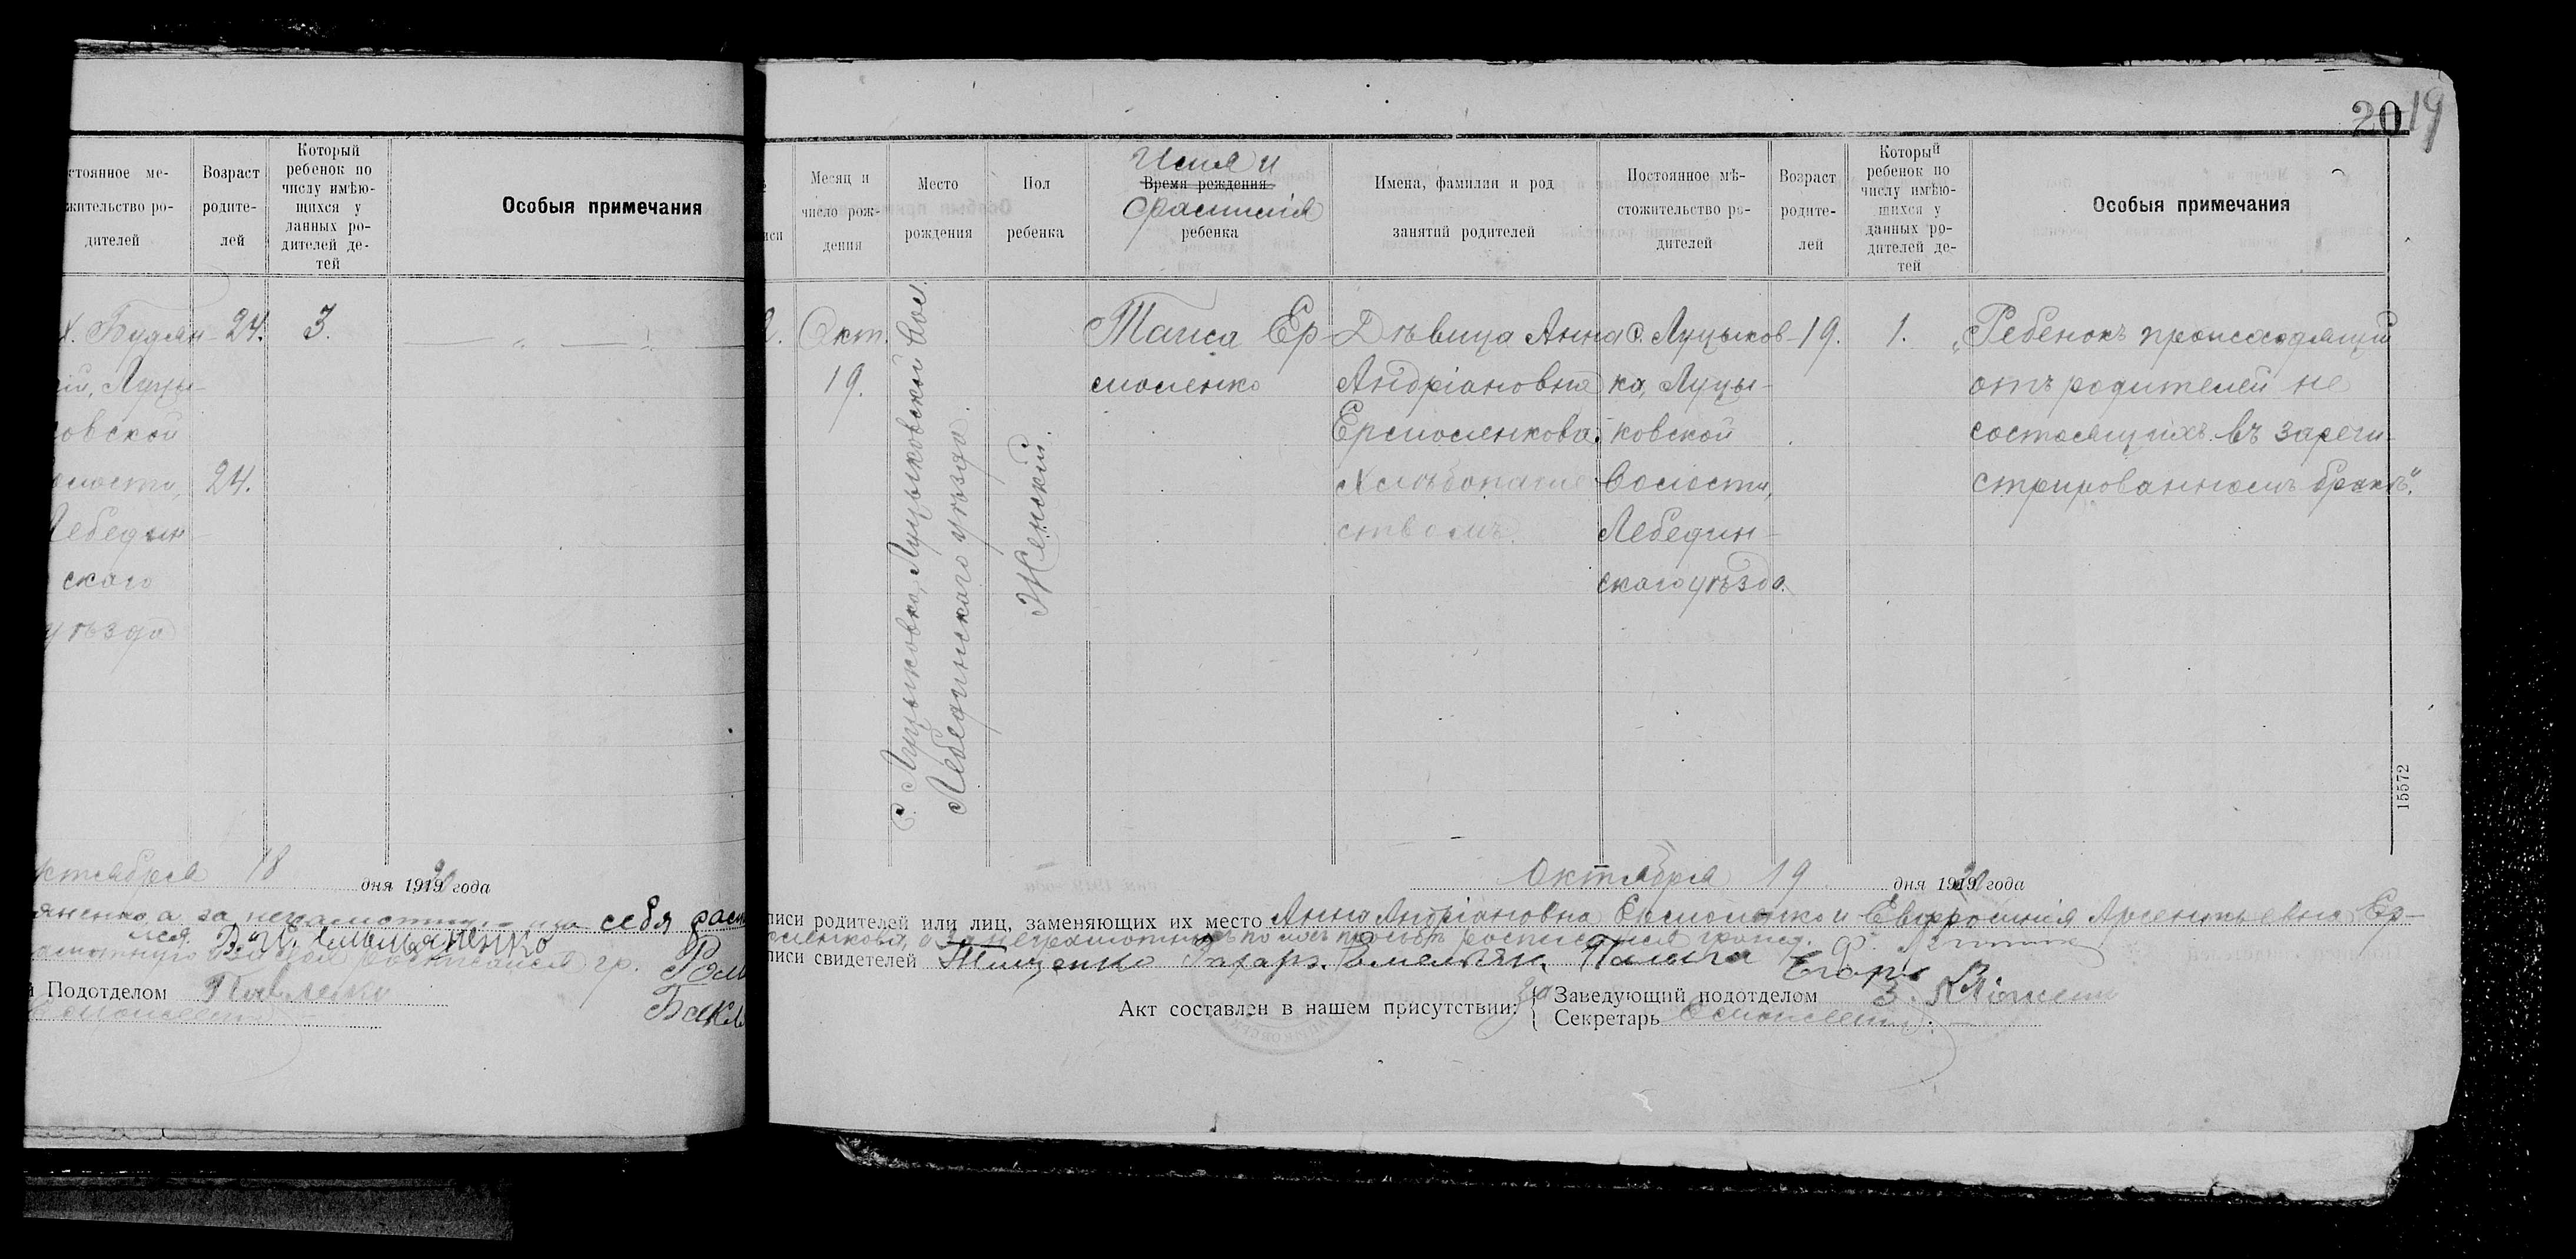 стоянное ме-
жительство ро-
дителей
Возраст
родите-
лей
Который
ребенок по
числу имѣю-
щихся у
данных ро-
дителей де-
тей
Особыя примечания
х. Будлян- 24. 3.
ій, Луцы-
ковской
олости, 24.
Лебедин-
скаго
уѣзда
ктября 18 дня 1919 года
а за себя
Подотделом Павленко
2019
Месяц и
число рож-
дения
Место
рождения
Пол
ребенка
Имя и
Время рождения
фамилія
ребенка
Имена, фамилии и род
занятий родителей
Постоянное мѣ-
стожительство ро-
дителей
Возраст
родите-
лей
Который
ребенок по
числу имѣю-
щихся у
данных ро-
дителей де-
тей
Особыя примечания
2. Окт.
19.
С. Луцыковка, Луцыковской вол.
Лебединскаго уѣзда.
Женский.
Таиса Ер-
моленко
Дѣвица Анна
Андріановна
Ермоленкова.
Хлѣбопаше-
ствомъ.
С. Луцыков-
ка, Луцы-
ковской
волости,
Лебедин-
скаго уѣзда.
19.
1.
„Ребенокъ происходящій
отъ родителей не
состоящихъ въ зареги-
стрированномъ бракѣ“.
15572
Октября 19 дня 1919 года
писи родителей или лиц, заменяющих их место Анна Андріановна Ермоленко и Евфросинія Арсентьевна Ер-
моленкова, а за неграмотныхъ по ихъ просьбѣ росписался гражд.
писи свидетелей Тищенко Захаръ. Емельян. Палига Егоръ
Акт составлен в нашем присутствии:
За Заведующий подотделом
Секретарь